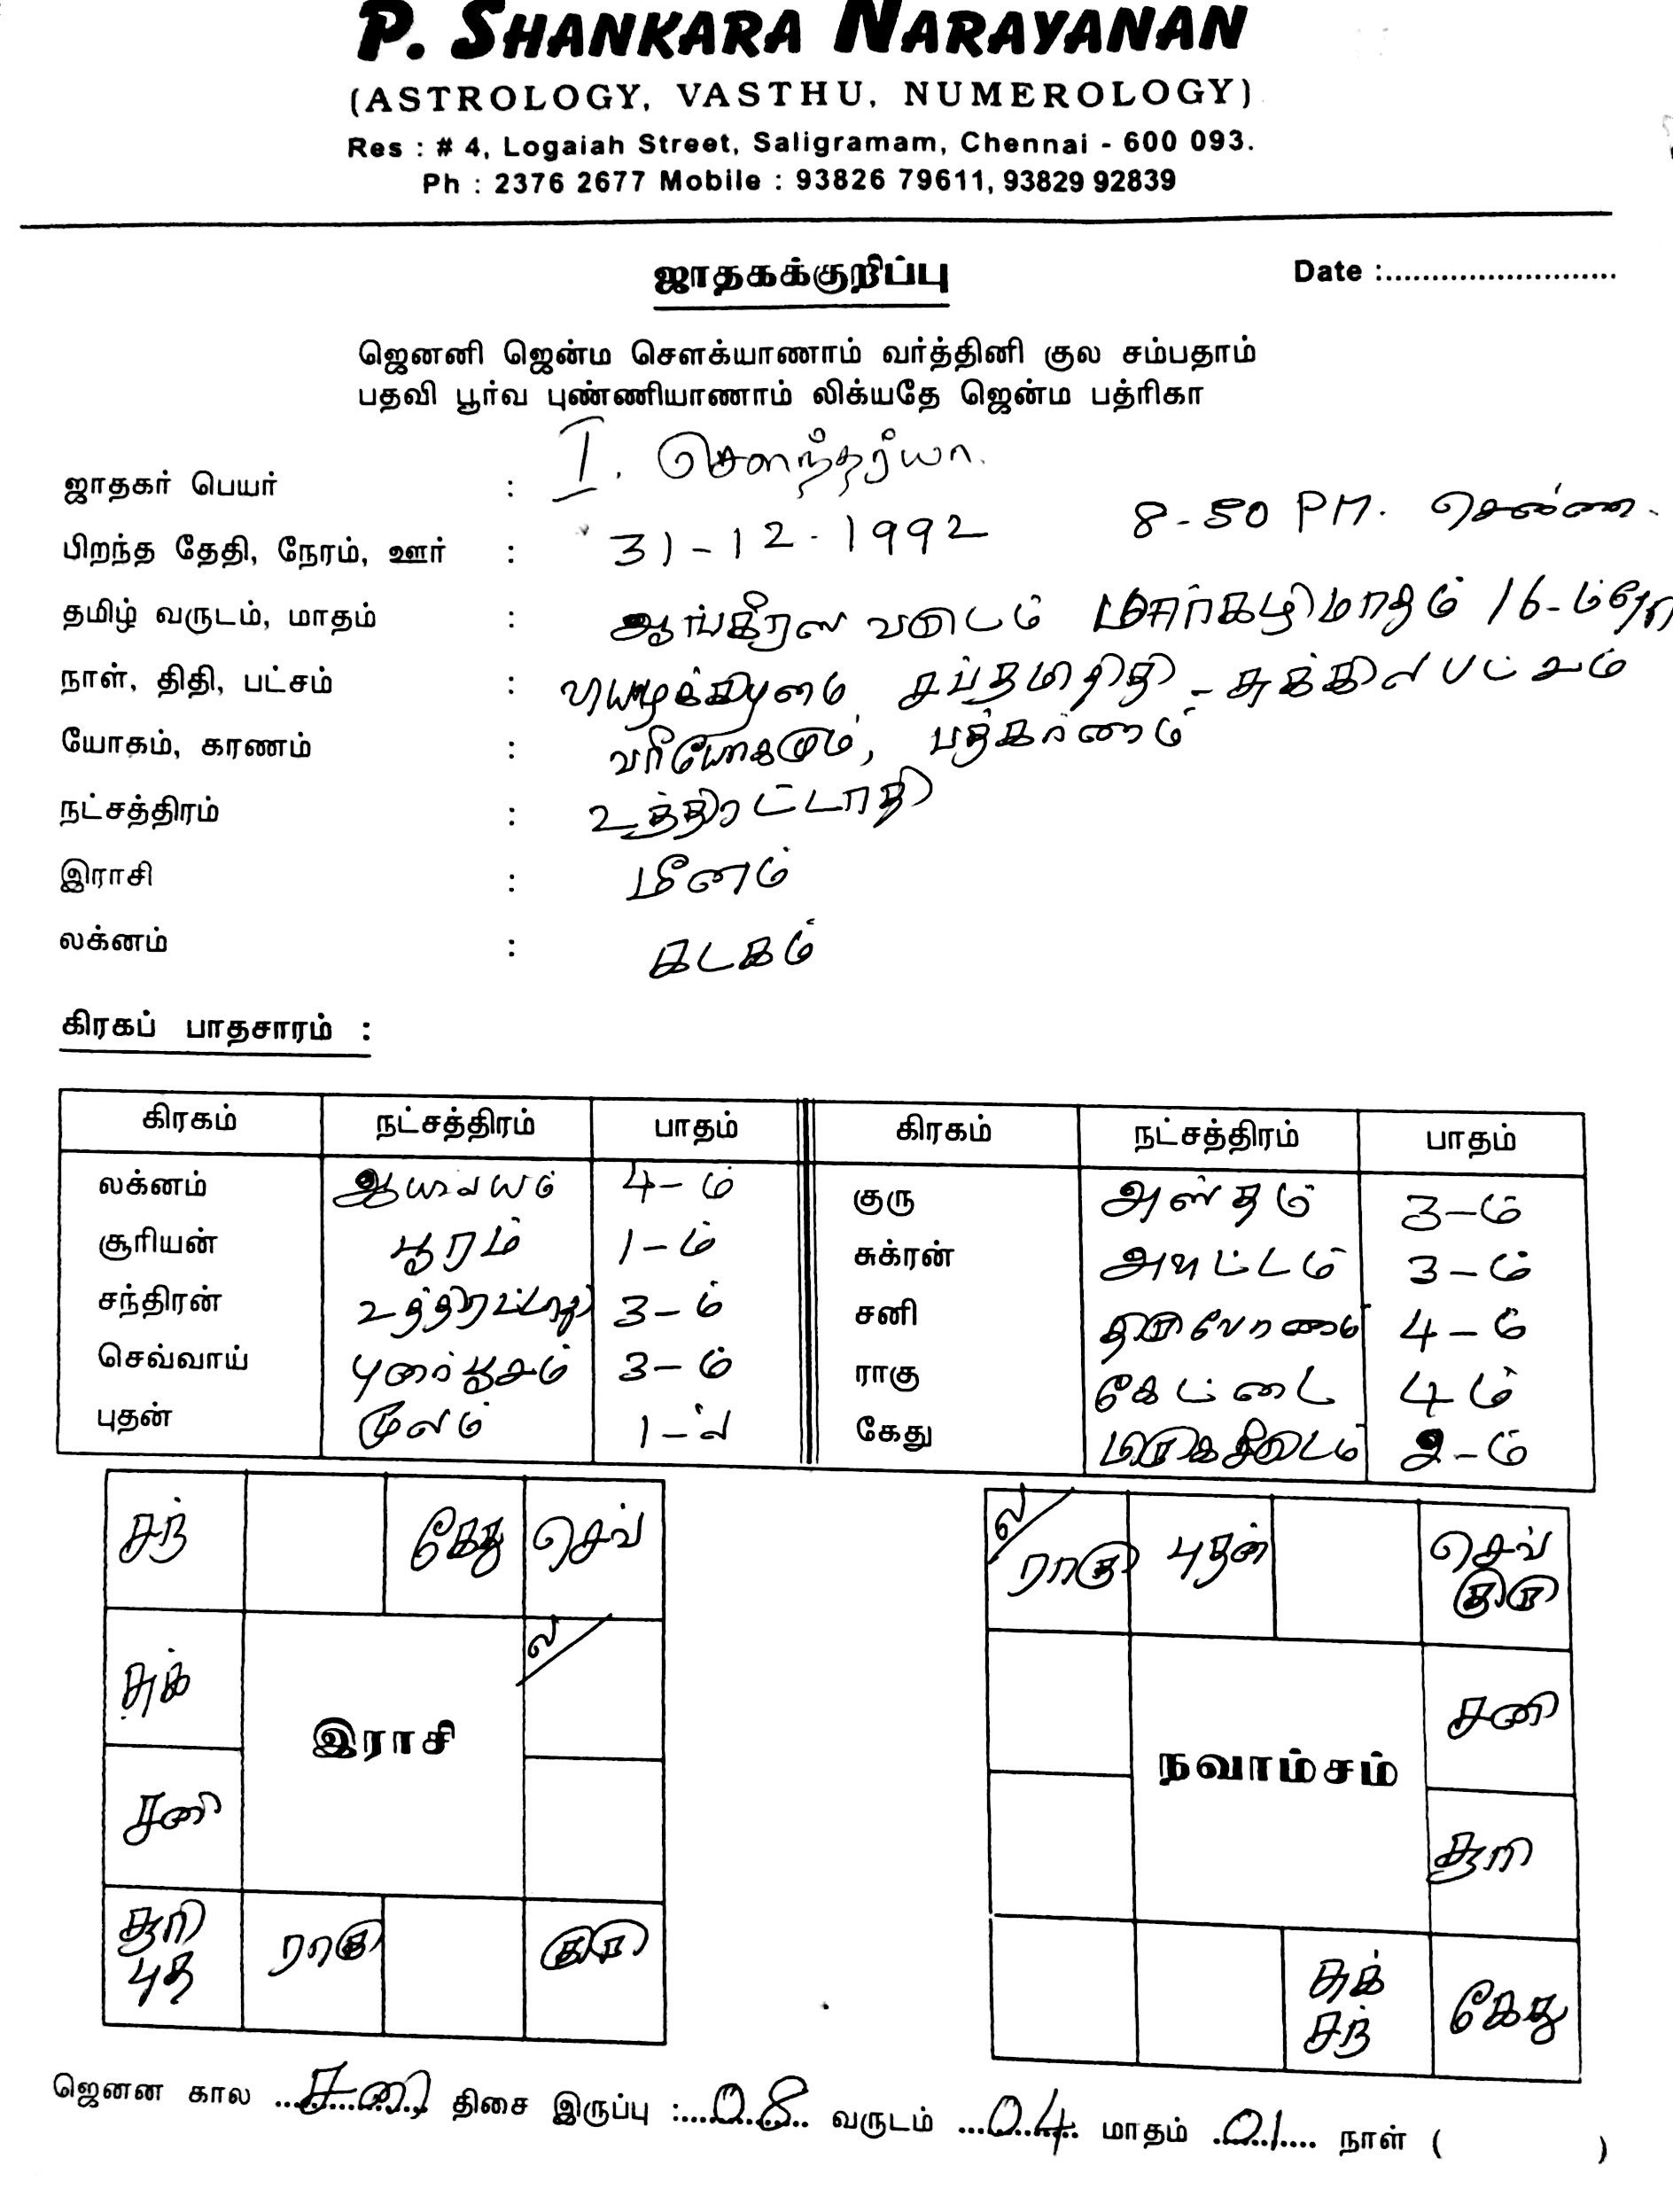 P. SHANKARA NARAYANAN
(ASTROLOGY, VASTHU, NUMEROLOGY)
Res : # 4, Logaiah Street, Saligramam, Chennai - 600 093.
Ph : 2376 2677 Mobile : 93826 79611, 93829 92839
ஜாதகக்குறிப்பு Date :..........................
ஜெனனி ஜென்ம சௌக்யாணாம் வர்த்தினி குல சம்பதாம்
பதவி பூர்வ புண்ணியாணாம் லிக்யதே ஜென்ம பத்ரிகா
ஜாதகர் பெயர் : I. சௌந்தர்யா.
பிறந்த தேதி, நேரம், ஊர் : 31-12-1992 8-50 PM. சென்னை.
தமிழ் வருடம், மாதம் : ஆங்கீரஸ வருடம் மார்கழிமாதம் 16-ம்தேதி
நாள், திதி, பட்சம் : வியாழக்கிழமை சப்தமிதிதி - சுக்கிலபட்சம்
யோகம், கரணம் : வரீயோகமும்,
நட்சத்திரம் : உத்திரட்டாதி
இராசி : மீனம்
லக்னம் : கடகம்
கிரகப் பாதசாரம் :
கிரகம் நட்சத்திரம் பாதம் கிரகம் நட்சத்திரம் பாதம்
லக்னம் ஆயில்யம் 4-ம் குரு அஸ்தம் 3-ம்
சூரியன் பூரம் 1-ம் சுக்ரன் அவிட்டம் 3-ம்
சந்திரன் உத்திரட்டாதி 3-ம் சனி திருவோணம் 4-ம்
செவ்வாய் புனர்பூசம் 3-ம் ராகு கேட்டை 4ம்
புதன் மூலம் 1-ம் கேது மிருகசீரிடம் 2-ம்
சந் கேது செவ்
ல
சுக்
இராசி
சனி
சூரி புத ராகு குரு
ல ராகு புதன் செவ் குரு
சனி
நவாம்சம்
சூரி
சுக் சந் கேது
ஜெனன கால ...சனி... திசை இருப்பு :...08... வருடம் ...04... மாதம் ...01... நாள் ( )